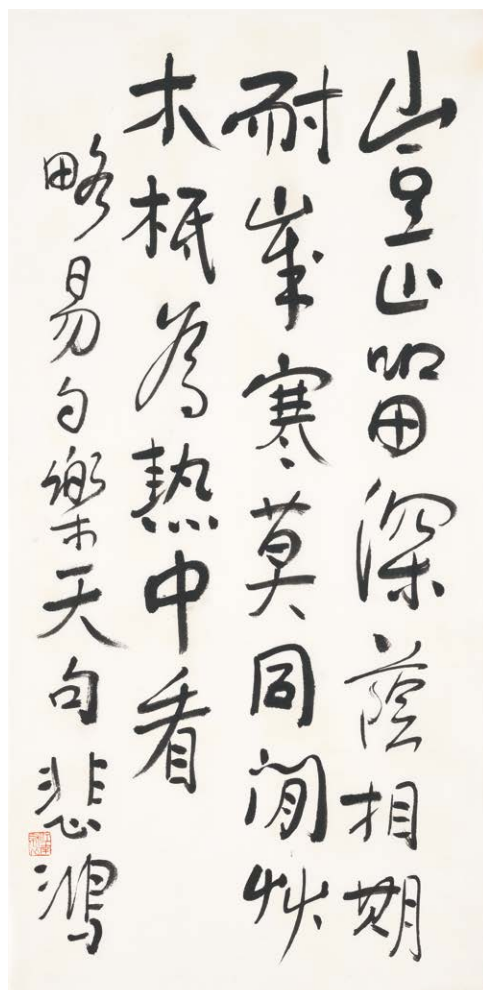 豈止留深蔭相期
耐歲寒莫同閒艸
木柢為熱中看
略易白樂天句悲鴻